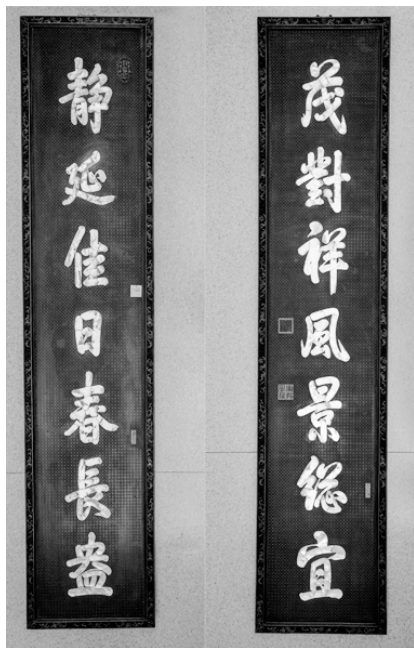 茂對祥風景總宜
靜延佳日春長盎